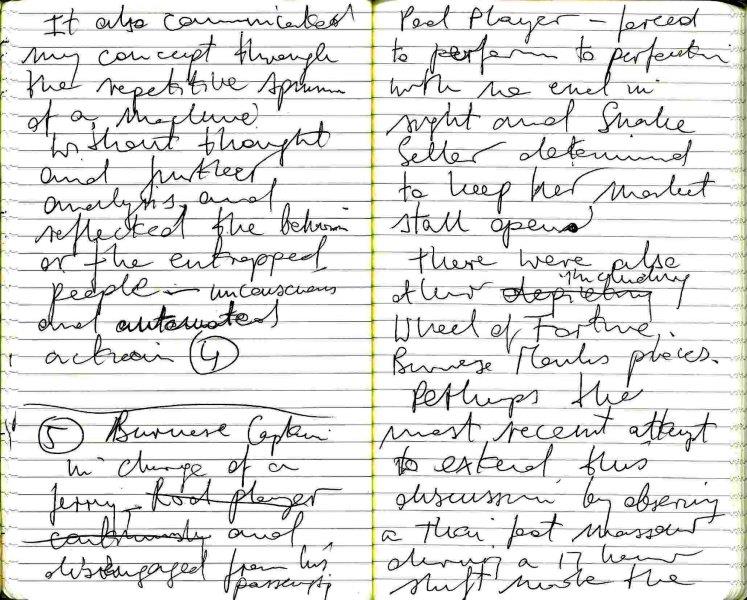 It also communicated
my concept through
the repetitive spinning
of a machine
without thought
and further
analysis, and
reflected the behaviour
of the entrapped
people — unconscious
and automated
action (4)
(5) Burmese Captain
in charge of a
ferry, Pool player
and
disengaged from his
passengers,
Pool Player — forced
to perform to perfection
with no end in
sight and Snake
Seller determined
to keep her market
stall open.
There were also
other depicting including
Wheel of Fortune,
Burmese Monks pieces.
Perhaps the
most recent attempt
to extend this
discussion by observing
a Thai foot masseur
during a 17 hour
shift made the